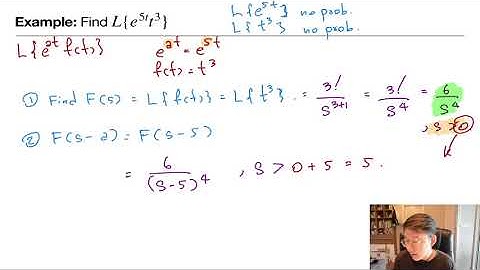 Example: Find L{e^{5t}t^3}
L{e^{5t}} no prob.
L{t^3} no prob.
L{e^{at} f(t)}
e^{at} = e^{5t}
f(t) = t^3
① Find F(s) = L{f(t)} = L{t^3}. = 3!/s^{3+1} = 3!/s^4 = 6/s^4
, s > 0
② F(s-a) = F(s-5)
= 6/(s-5)^4 , s > 0+5 = 5.